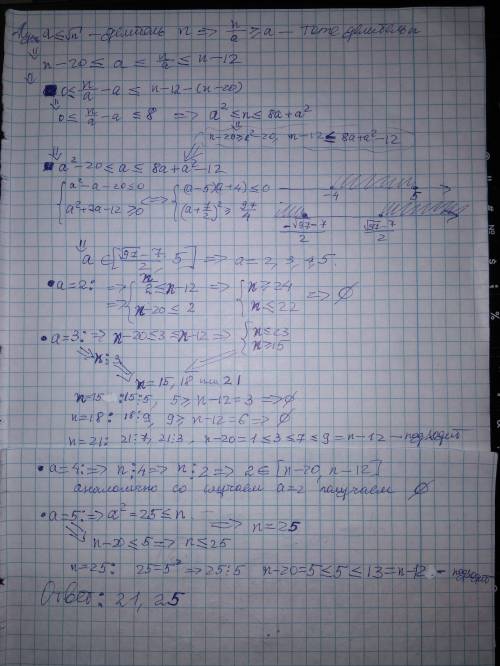 a ≤ √n - делитель n => n/a ≥ a - тоже делитель
n-20 ≤ a ≤ n/a ≤ n-12
0 ≤ n/a - a ≤ n-12-(n-20)
0 ≤ n/a - a ≤ 8 => a² ≤ n ≤ 8a+a²
n-20 ≥ a²-20, n-12 ≤ 8a+a²-12
a²-20 ≤ a ≤ 8a+a²-12
{a²-a-20 ≤ 0 <=> {(a-5)(a+4) ≤ 0 -4 5
{a²+7a-12 ≥ 0 {(a+7/2)² ≥ 97/4 (-√97-7)/2 (√97-7)/2
a ∈ [(√97-7)/2; 5] => a = 2, 3, 4, 5.
• a=2: => {n/2 ≤ n-12 => {n ≥ 24 => ∅
=> {n-20 ≤ 2 {n ≤ 22
• a=3: => n-20 ≤ 3 ≤ n-12 => {n ≤ 23
n⋮3 {n ≥ 15
n=15, 18 или 21
n=15 :15⋮5, 5 ≥ n-12=3 => ∅
n=18: 18⋮9, 9 ≥ n-12=6 => ∅
n=21: 21⋮7, 21⋮3, n-20=1 ≤ 3 ≤ 7 ≤ 9 = n-12 - подходит
• a=4: => n⋮4 => n⋮2 => 2 ∈ [n-20, n-12]
аналогично со случаем a=2 получаем ∅
• a=5: => a²=25 ≤ n
=> n=25
n-20 ≤ 5 => n ≤ 25
n=25: 25=5² => 25⋮5 n-20=5 ≤ 5 ≤ 13 = n-12 - подходит
Ответ: 21, 25